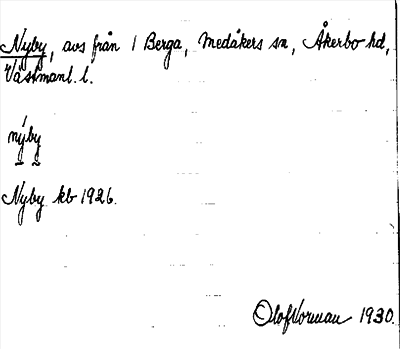 Nyby, avs från 1 Berga, Medåkers sn, Åkerbo hd,
Västmanl. l.
nýby
Nyby kb 1926.
Olof Norman 1930.